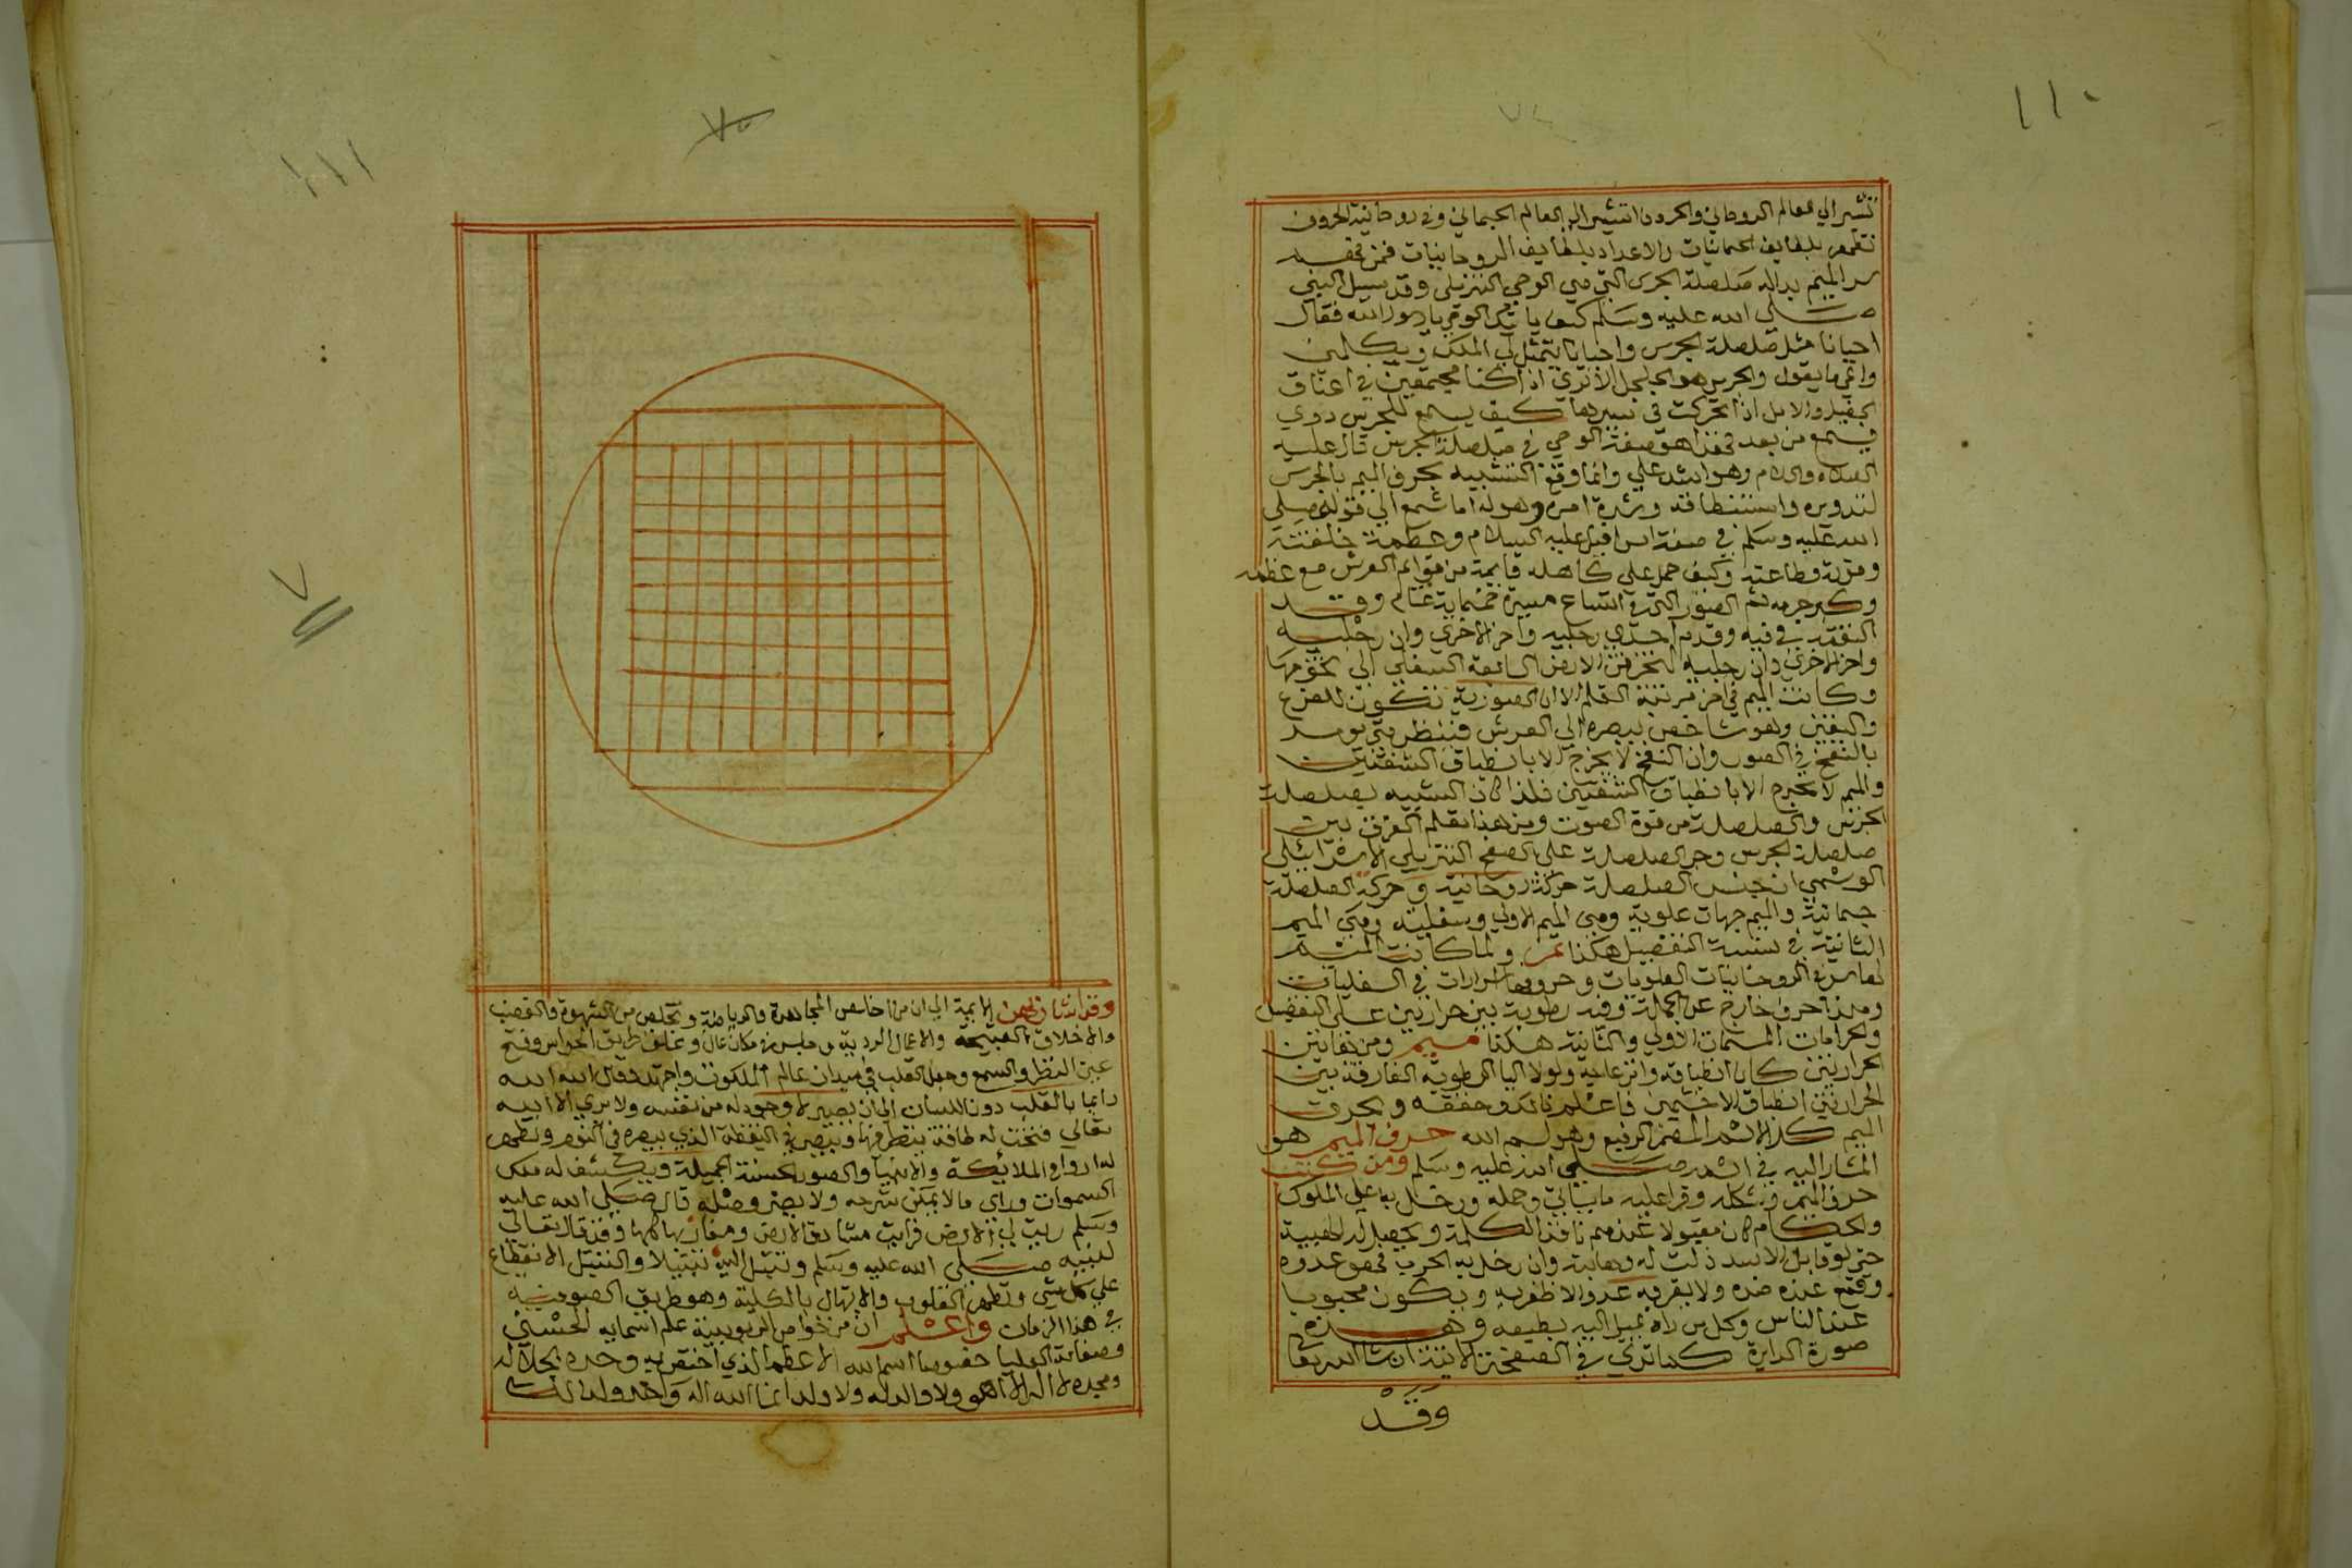 ١١٠
تشير الي العالم الروحاني والحروف تشير الي العالم الجسماني وفي روحانية الحروف
تظهر بلطايف الجسمانيات والاعداد بلطايف الروحانيات فمن تحقق
سر الميم بداله صلصلة الجرس التي هي الوحي التنزيلي وقد سيل النبي
صلي الله عليه وسلم كيف ياتيك الوحي يا رسول الله فقال
احيانا مثل صلصلة الجرس واحيانا يتمثل لي الملك ويكلمني
واعي ما يقول والجرس هو الجلجل الا تري اذا كنا مجتمعين في اعناق
الخيل والابل اذا تحركت في سيرها كيف يسمع للجرس دوي
فيسمع من بعد فهذا هو صفة الوحي في صلصلة الجرس قال عليه
الصلاة والسلام وهو اشد علي وانما وقع التشبيه بحرف الميم بالجرس
لتدويره واستنطاقه وشدة امره وهوله اما تسمع الي قوله صلي
الله عليه وسلم في صفة اسرافيل عليه السلام وعظمة خلقته
وقوته وطاعته وكيف حمل علي كاهله قايمة من قوايم العرش مع عظمه
وكبر جرمه ثم الصور الذي اتساعه مسيرة خمسماية عام وقد
التقمه في فيه وقدم احدي رجليه واخر الاخري وان رجليه
واخر الاخري وان رجليه لتخرقن الارض السابعة السفلي الي تخومها
وكانت الميم في اخر مرتبة القلم لان الصورية تكون للفزع
والنفس وهو شاخص ببصره الي العرش فينتظر متي يومر
بالنفخ في الصور وان النفخ لا يخرج الا بانطباق الشفتين
والميم لا تخرج الا بانطباق الشفتين فلذا كان التشبيه بصلصلة
الجرس والصلصلة من قوة الصوت ومن هذا تعلم الفرق بين
صلصلة الجرس وجر الصلصلة علي الصفح التنزيلي الاسرافيلي
الوسمي ان جنس الصلصلة حركة روحانية وحركة الصلصلة
جسمانية والميم جهات علوية وهي الميم الاولي وسفلية وهي الميم
الثانية في نسبة التفصيل هكذا مم ولما كانت الميم
لها سر في الروحانيات العلويات وحروفها اسرارات في السفليات
وهذا حرف خارج عن الجملة وفيه رطوبة بين حرارتين علي التفصيل
والحرامات الميمات الاولي والثانية هكذا ميم ومن بقايين
الحرارتين كان انطباقه وانزعاجه ولولا اليا الرطوبة الفارقة بين
الحرارتين انطباق الاخيمين فاعلم ذلك وحققه وبحرف
الميم كمل الاسم المضمر الرفيع وهو اسم الله حرف الميم هو
المشار اليه في اسم صلي الله عليه وسلم ومن كتب
حرف الميم وشكله وقرا عليه ما ياتي وحمله ودخل به علي الملوك
والحكام كان مقبولا عندهم نافذ الكلمة ويحصل له الهيبة
حتي لو قابل الاسد ذلت له وهابته وان دخل به الحرب قهر عدوه
وقمع عنده ضده ولا يقربه عدو الا ظفر به ويكون محبوبا
عند الناس وكل من راه يميل اليه بطبعه وهذه
صورة الدايرة كما تري في الصفحة الاتية ان شا الله تعالي
وقد
١١١
٧٥
وقد اشار بعض الايمة الي ان من اخلص المجاهدة والرياضة وتخلص من الشهوة والغضب
والاخلاق القبيحة والاعمال الردية وجلس في مكان خال وغلق طريق الحواس وفتح
عين النظر والسمع وجعل القلب في ميدان عالم الملكوت واجتهد وقال الله الله
دايما بالقلب دون اللسان الي ان يصير لا وجود له من نفسه ولا يري الا اليه
تعالي فتحت له طاقة ينظر منها ويبصر في اليقظة الذي يبصره في النوم وتظهر
له ارواح الملايكة والانبيا والصور الحسنة الجميلة ويكشف له ملك
السموات وراي ما لا يمكن شرحه ولا يصف وصفه قال صلي الله عليه
وسلم زويت لي الارض فرايت مشارق الارض ومغاربها كلها وقد قال تعالي
لنبيه صلي الله عليه وسلم وتبتل اليه تبتيلا والتبتيل الانقطاع
علي كل شي وتطهير القلوب والابتهال بالكلية وهو طريق الصوفية
في هذا الزمان واعلم ان من خواص الربوبية علم اسمايه الحسني
وصفاته العليا خصوصا اسم الله الاعظم الذي اختص به وحده بجلاله
ومجده لا اله الا هو ولا والد له ولا ولد انما الله اله واحد ولذلك